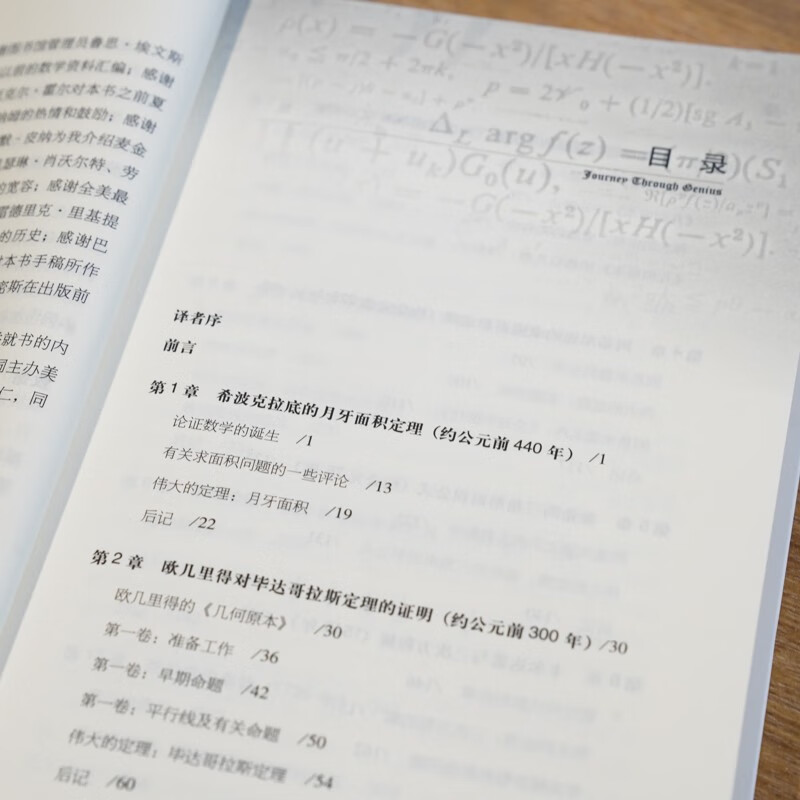 书馆管理员鲁思·埃文斯
以前的数学资料汇编；感谢
克尔·霍尔对本书之前夏
的热情和鼓励；感谢
默·皮纳为我介绍麦金
瑟琳·肖沃尔特、劳
的宽容；感谢全美最
雷德里克·里基提
的历史；感谢巴
对本书手稿所作
密斯在出版前
就书的内
同主办美
仁，同
ρ(x) = −G(−x²)/[xH(−x²)].
≤ π/2 + 2πk,
p = 2𝒱₀ + (1/2)[sg A₁
Δ_L arg f(z) = (π )(S₁
目录
Journey Through Genius
(u + u_k)G₀(u),
−G(−x²)/[xH(−x²)].
译者序
前言
第1章 希波克拉底的月牙面积定理（约公元前440年） /1
论证数学的诞生 /1
有关求面积问题的一些评论 /13
伟大的定理：月牙面积 /19
后记 /22
第2章 欧几里得对毕达哥拉斯定理的证明（约公元前300年）/30
欧几里得的《几何原本》 /30
第一卷：准备工作 /36
第一卷：早期命题 /42
第一卷：平行线及有关命题 /50
伟大的定理：毕达哥拉斯定理 /54
后记 /60